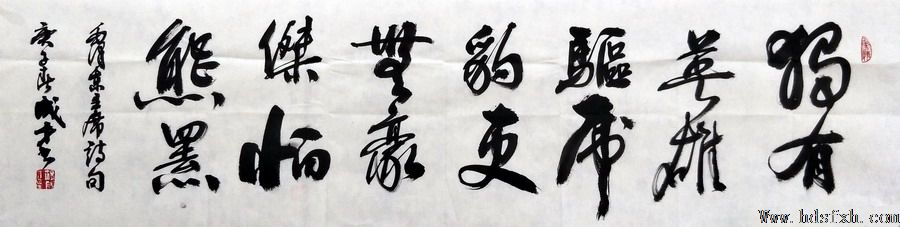 獨有
英雄
驅虎
豹更
無豪
傑怕
熊羆
毛澤東主席詩句
庚子春成才書
Www.hdsfxh.com